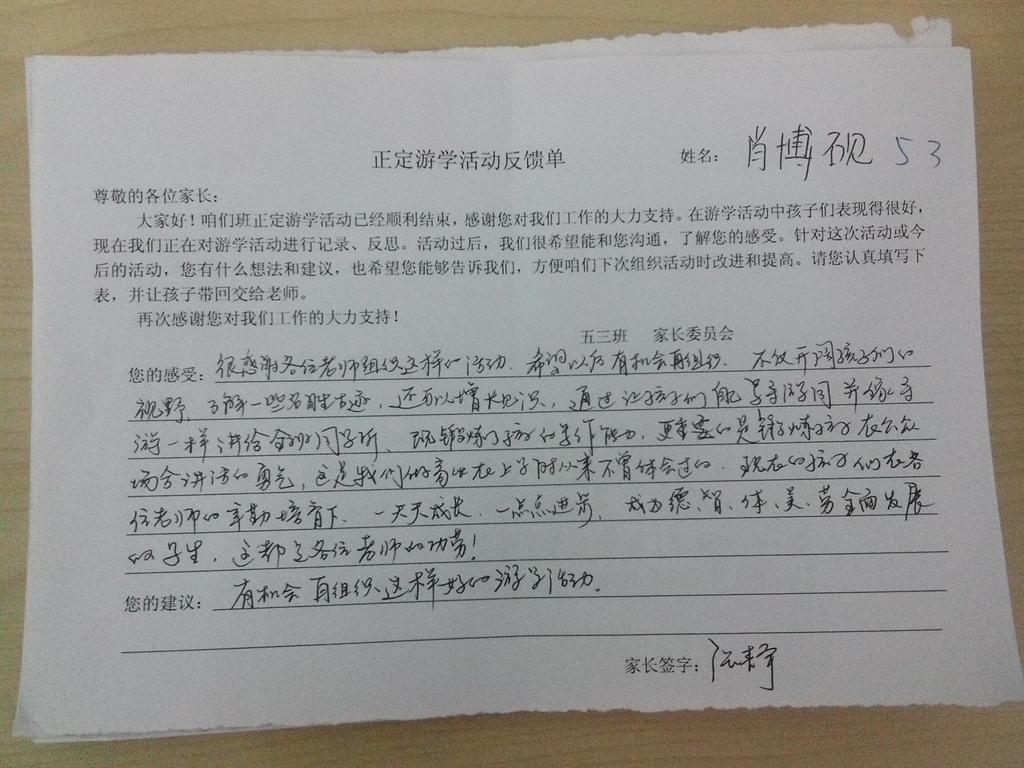 正定游学活动反馈单 姓名： 肖博砚 53
尊敬的各位家长：
大家好！咱们班正定游学活动已经顺利结束，感谢您对我们工作的大力支持。在游学活动中孩子们表现得很好，
现在我们正在对游学活动进行记录、反思。活动过后，我们很希望能和您沟通，了解您的感受。针对这次活动或今
后的活动，您有什么想法和建议，也希望您能够告诉我们，方便咱们下次组织活动时改进和提高。请您认真填写下
表，并让孩子带回交给老师。
再次感谢您对我们工作的大力支持！
五三班 家长委员会
您的感受：很感谢各位老师组织这样的活动，希望以后有机会再组织。不仅开阔孩子们的
视野，了解一些名胜古迹，还可以增长见识，通过让孩子们能 并像导
游一样讲给全班同学听，既锻炼了孩子的写作能力，更重要的是锻炼孩子在公众
场合讲话的勇气，这是我们做家长在上学时从来不曾体会过的。现在的孩子们在各
位老师的辛勤培育下，一天天成长，一点点进步，成为德、智、体、美、劳全面发展
的学生，这都是各位老师的功劳！
您的建议：有机会再组织这样好的游学活动。
家长签字：